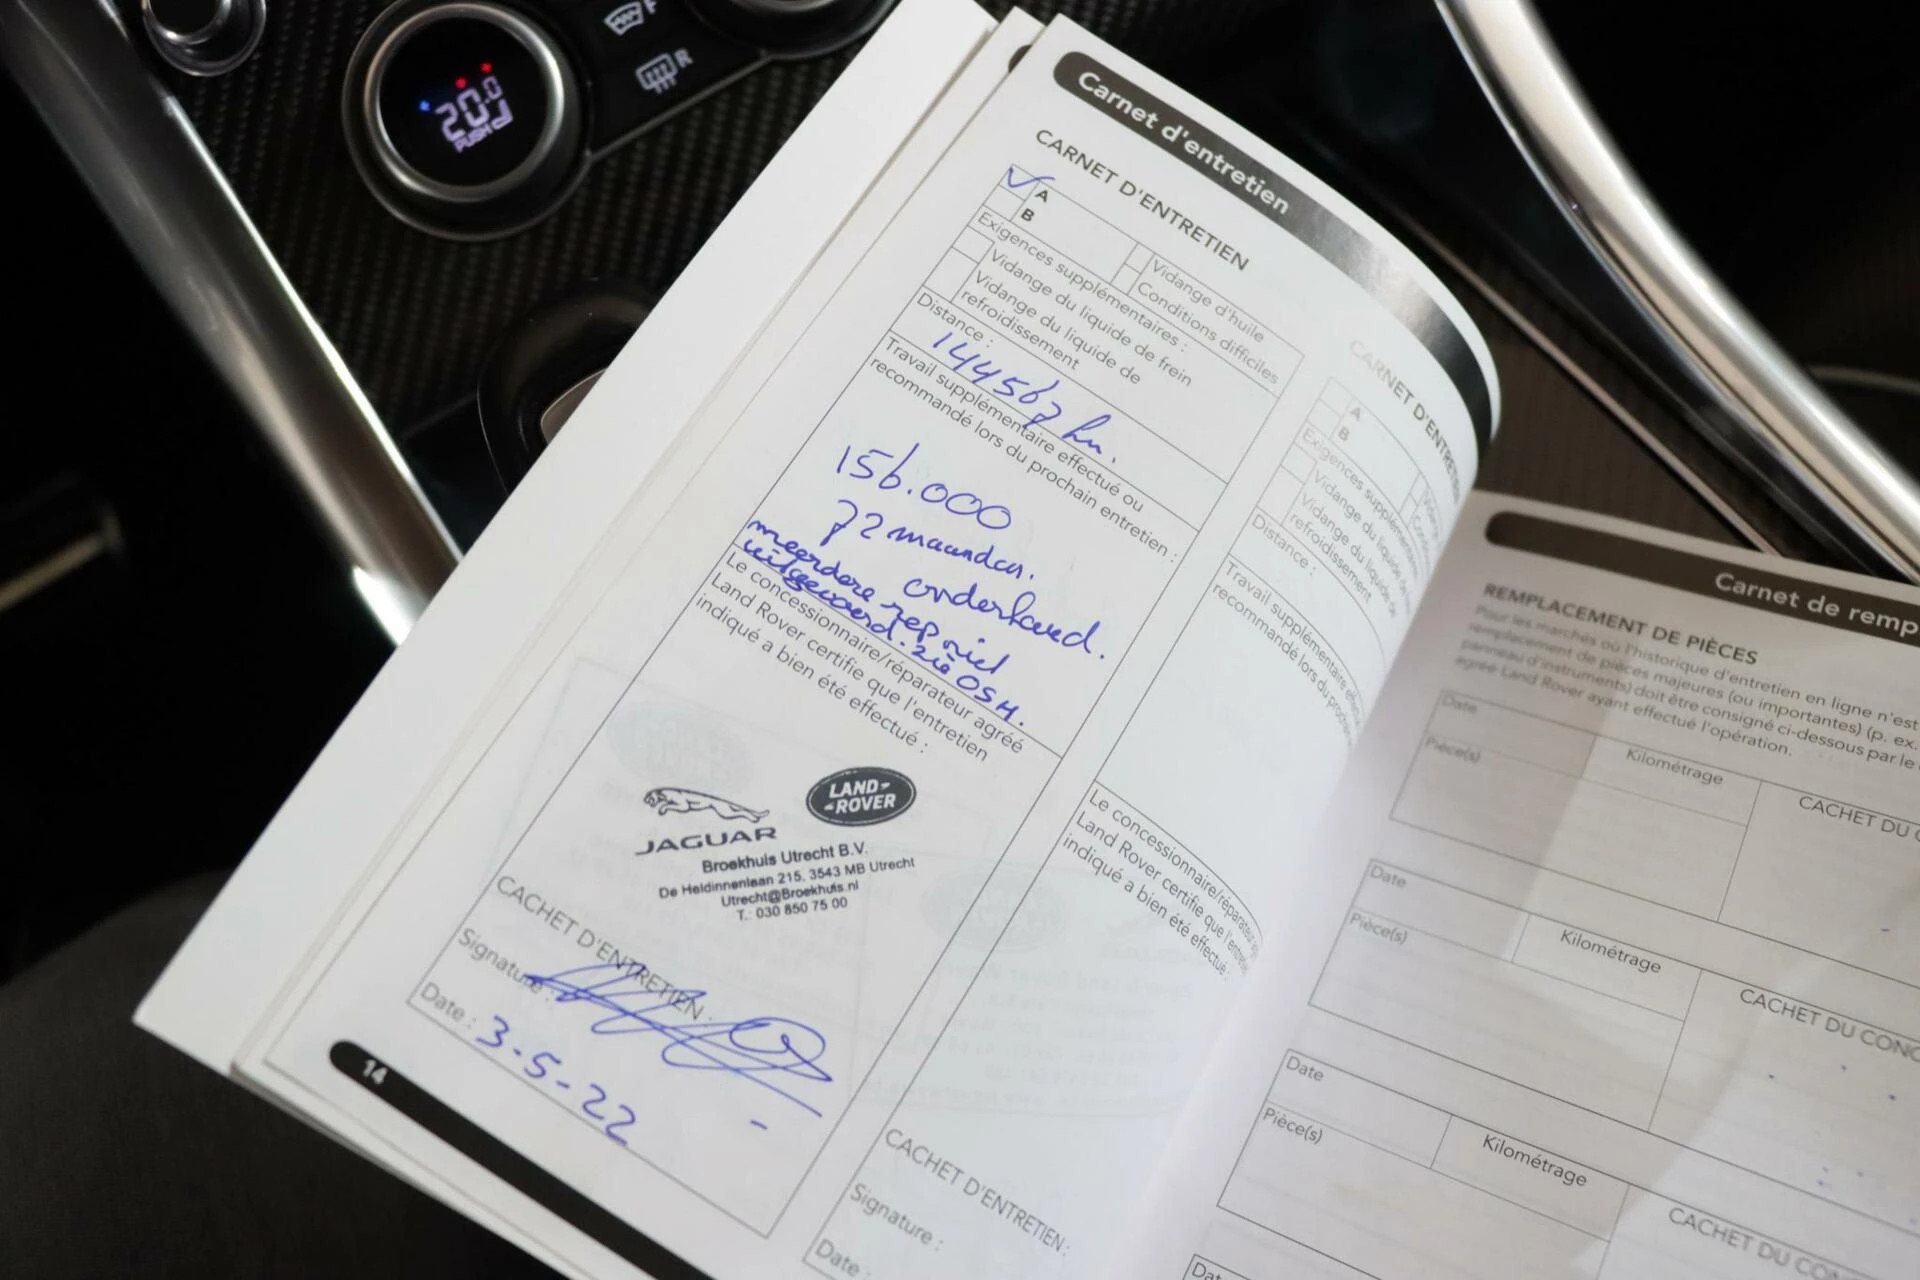 20.0
PUSH
F
R
Carnet d'entretien
CARNET D'ENTRETIEN
A
B
Vidange d'huile
Conditions difficiles
Exigences supplémentaires :
Vidange du liquide de frein
Vidange du liquide de
refroidissement
Distance :
144567 km.
Travail supplémentaire effectué ou
recommandé lors du prochain entretien :
156.000
72 maanden.
onderhoud.
meerdere
uitgevoerd. zie OSH.
Le concessionnaire/réparateur agréé
Land Rover certifie que l'entretien
indiqué a bien été effectué :
JAGUAR
LAND-
-ROVER
Broekhuis Utrecht B.V.
De Heldinnenlaan 215, 3543 MB Utrecht
Utrecht@Broekhuis.nl
T.: 030 850 75 00
CACHET D'ENTRETIEN :
Signature :
Date : 3-5-22
14
CARNET D'ENTRETIEN
A
B
Exigences supplémentaires
Vidange du liquide de
Vidange du liquide de
refroidissement
Distance :
Travail supplémentaire
recommandé lors du
Le concessionnaire/réparateur
Land Rover certifie que l'entretien
indiqué a bien été effectué :
CACHET D'ENTRETIEN :
Signature :
Date :
Carnet de remp
REMPLACEMENT DE PIÈCES
Pour les marchés où l'historique d'entretien en ligne n'est
remplacement de pièces majeures (ou importantes) (p. ex.
panneau d'instruments) doit être consigné ci-dessous par le
agréé Land Rover ayant effectué l'opération.
Date
Pièce(s)
Kilométrage
CACHET DU C
Date
Pièce(s)
Kilométrage
CACHET DU CONC
Date
Pièce(s)
Kilométrage
CACHET DU CON
Dat